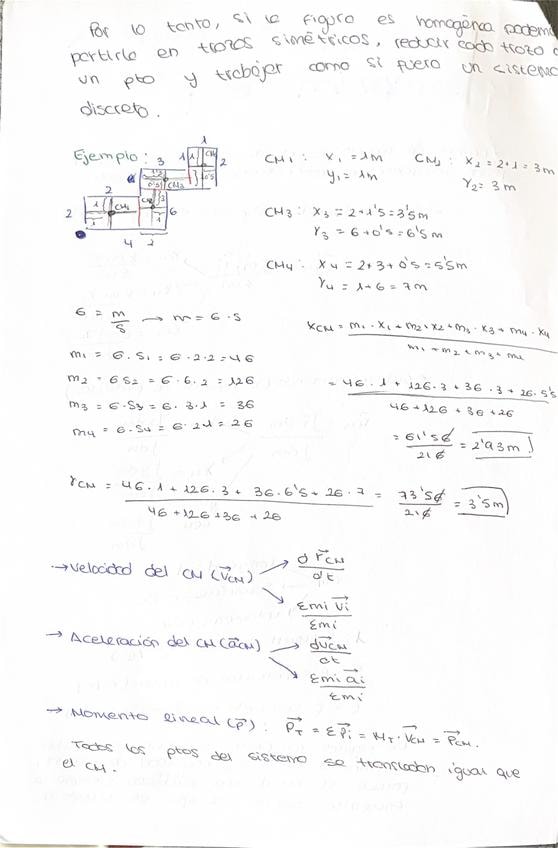 Por lo tanto, si la figura es homogénea podemos
partirla en trozos simétricos, reducir cada trozo a
un pto y trabajar como si fuera un sistema
discreto.
Ejemplo:
CM1: x₁ = 1m
y₁ = 1m
CM2: x₂ = 2+1 = 3m
Y₂ = 3m
CM3: x₃ = 2+1's = 3's m
Y₃ = 6+0's = 6's m
CM4: x₄ = 2+3+0's = 5's m
Y₄ = 1+6 = 7m
6 = m/s → m = 6·s
m₁ = 6·S₁ = 6·2·2 = 46
m₂ = 6S₂ = 6·6·2 = 126
m₃ = 6·S₃ = 6·3·1 = 36
m₄ = 6·S₄ = 6·2·1 = 26
x_CM = m₁·x₁+m₂·x₂+m₃·x₃+m₄·x₄ / m₁+m₂+m₃+m₄
= 46·1+126·3+36·3+26·5's / 46+126+36+26
= 61's6 / 216 = 2'93m
Y_CM = 46·1+126·3+36·6's+26·7 / 46+126+36+26 = 73's6 / 216 = 3's m
→ Velocidad del CM (v⃗_CM) → dr⃗_CM / dt
Σmi v⃗i / Σmi
→ Aceleración del CM (a⃗_CM) → dv⃗_CM / dt
Σmi a⃗i / Σmi
→ Momento lineal (p⃗): P⃗_T = Σp⃗i = M_T·v⃗_CM = P⃗_CM.
Todos los ptos del sistema se transladan igual que
el CM.